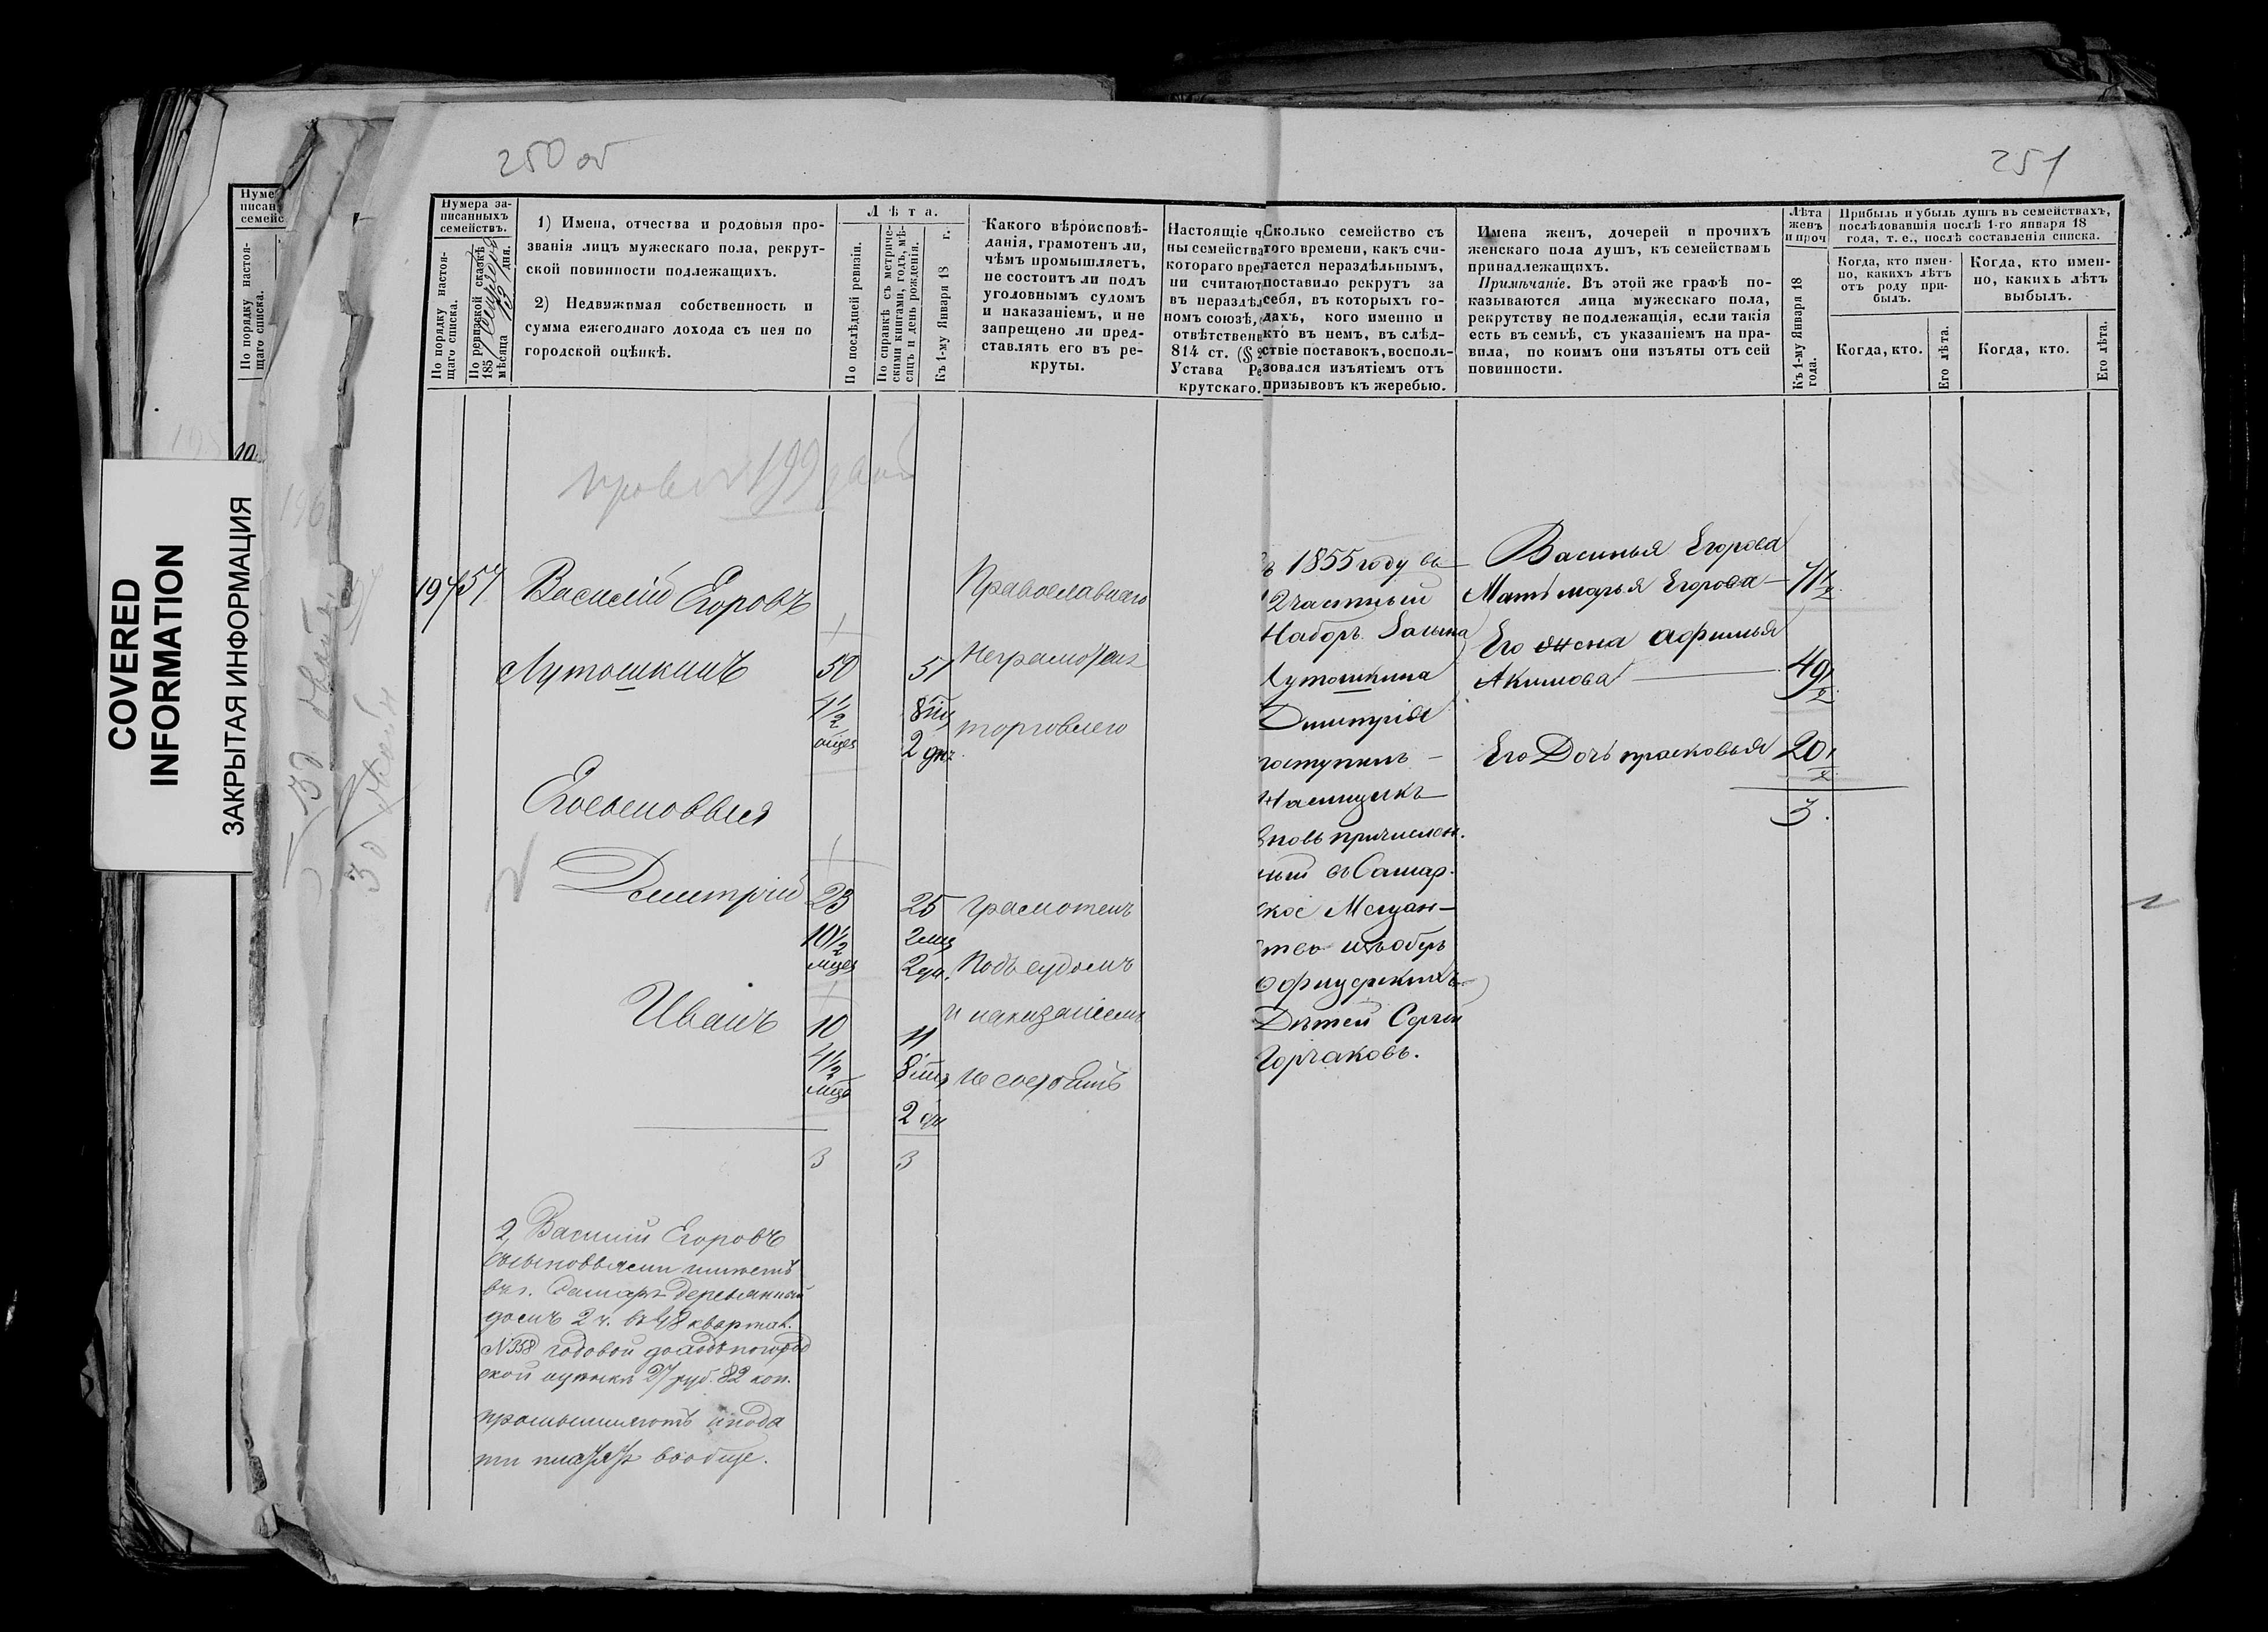 250 об
251
COVERED
INFORMATION
ЗАКРЫТАЯ ИНФОРМАЦИЯ
Нумера за-
писанныхъ
семействъ.
По порядку настоя-
щаго списка.
По ревизской сказкѣ
185 мѣсяца дня.
1) Имена, отчества и родовыя про-
званія лицъ мужескаго пола, рекрут-
ской повинности подлежащихъ.
2) Недвижимая собственность и
сумма ежегоднаго дохода съ нея по
городской оцѣнкѣ.
Лѣта.
По послѣдней ревизіи.
По справкѣ съ метриче-
скими книгами, годъ, мѣ-
сяцъ и день рожденія.
Къ 1-му Января 18 г.
Какого вѣроисповѣ-
данія, грамотенъ ли,
чѣмъ промышляетъ,
не состоитъ ли подъ
уголовнымъ судомъ
и наказаніемъ, и не
запрещено ли пред-
ставлять его въ ре-
круты.
Настоящіе ч
ны семейства
котораго вре
ни считают
въ нераздѣл
номъ союзѣ,
отвѣтствен
814 ст. (§
Устава Ре
крутскаго.
Сколько семейство съ
того времени, какъ счи-
тается нераздѣльнымъ,
поставило рекрутъ за
себя, въ которыхъ го-
дахъ, кого именно и
кто въ немъ, въ слѣд-
ствіе поставокъ, восполь-
зовался изъятіемъ отъ
призывовъ къ жеребью.
Имена женъ, дочерей и прочихъ
женскаго пола душъ, къ семействамъ
принадлежащихъ.
Примѣчаніе. Въ этой же графѣ по-
казываются лица мужескаго пола,
рекрутству не подлежащія, если такія
есть въ семьѣ, съ указаніемъ на пра-
вила, по коимъ они изъяты отъ сей
повинности.
Лѣта
женъ
и проч
Къ 1-му Января 18
года.
Прибыль и убыль душъ въ семействахъ,
послѣдовавшія послѣ 1-го января 18
года, т. е., послѣ составленія списка.
Когда, кто имен-
но, какихъ лѣтъ
отъ роду при-
былъ.
Когда, кто имен-
но, какихъ лѣтъ
выбылъ.
Когда, кто.
Его лѣта.
Когда, кто.
Его лѣта.
197
57
Василій Егоровъ
Лутошкинъ
50
4 1/2
51
8 мц
2 дн.
Православнаго
Неграмотенъ
торговлею
Его сыновья
Дмитрій
23
10 1/2
мцев
25
2 мц
2 дн.
грамотенъ
Подъ судомъ
и наказаніемъ
не состоятъ
Иванъ
10
4 1/2
мцв
11
8 мц
2 дн
3
3
2, Василій Егоровъ
съ сыновьями имѣетъ
въ г. Самарѣ деревянный
домъ 2 ч. въ 48 квартал.
№358 годовой доходъ по город
ской оцѣнки 27 руб. 82 коп.
промышляютъ и пода
ти платятъ вообще.
въ 1855 году въ
12 частный
Наборъ за сына
Лутошкина
Дмитрія
поступилъ
Наемщикъ
вновь причислен.
ный въ Самар-
ское Мещан-
ство изъ оберъ
офицерскихъ
Дѣтей Сергѣй
Горчаковъ.
Василья Егорова
Мать марья Егорова 71 1/2
Его жена афимья
Акимова 49 1/2
Его Дочь прасковья 20 1/2
3.